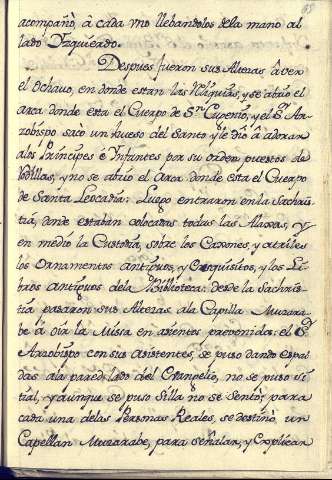 acompañò, à cada vno llebandolos dela mano al
lado Yzquierdo.
Despues fueron sus Altezas â ver
el Ochavo, en donde estan las Reliquias, y se abrio el
arca donde esta el Cuerpo de Sn Eugenio, y el Sr Ar-
zobispo saco un hueso del Santo y le diò â adorar
alos Principes è Ynfantes por su orden puestos de
Rodillas, y no se abriò el Arca donde esta el Cuerpo
de Santa Leocadia: Luego entraron en la Sachris-
tia, donde estaban colocadas todas las Alaxas, y
en medio la Custodia, sobre los Caxones, y atriles
los Ornamentos antiguos, y Exquisitos, y los Li-
bros antiguos dela Biblioteca: desde la Sachris-
tia pasaron sus Altezas ala Capilla Muzara-
be â oìr la Missa en asientos prevenidos: el Sr
Arzobispo con sus asistentes, se puso dando espal-
das ala pared lado del Evangelio, no se puso Si-
tial, y aunque se puso Silla no se sentò; para
cada una delas Personas Reales, se destinò, un
Capellan Muzarabe, para señalar, y Explicar